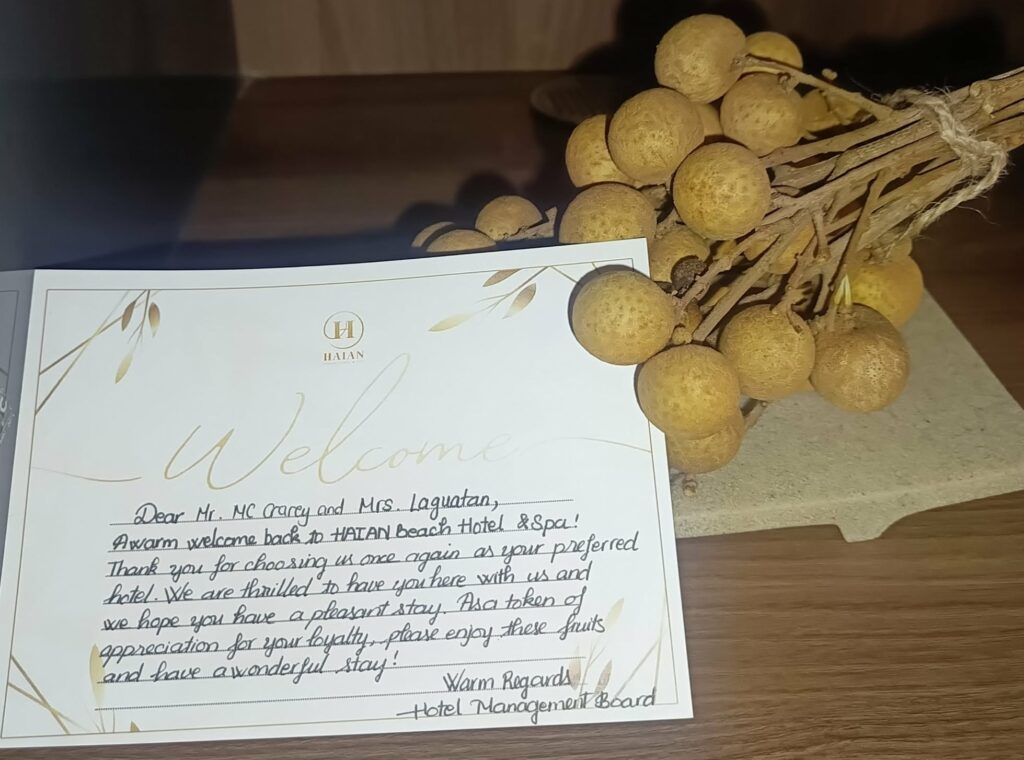 H
HAIAN
Welcome
Dear Mr. MC Crarey and Mrs. Laguatan,
A warm welcome back to HAIAN Beach Hotel & Spa!
Thank you for choosing us once again as your preferred
hotel. We are thrilled to have you here with us and
we hope you have a pleasant stay. As a token of
appreciation for your loyalty, please enjoy these fruits
and have a wonderful stay!
Warm Regards
Hotel Management Board